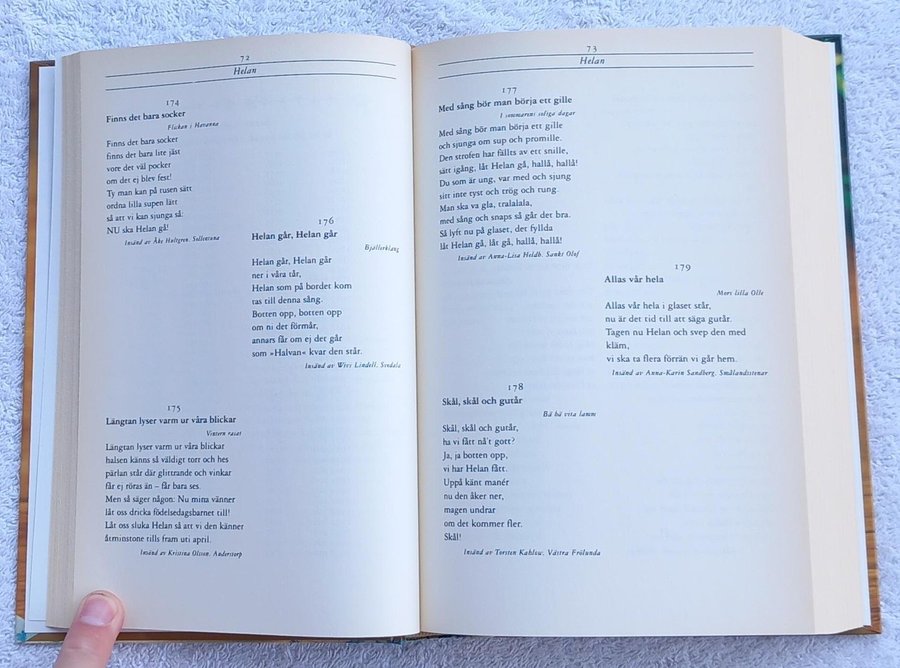 72
Helan
174
Finns det bara socker
Flickan i Havanna
Finns det bara socker
finns det bara lite jäst
vore det väl pocker
om det ej blev fest!
Ty man kan på tusen sätt
ordna lilla supen lätt
så att vi kan sjunga så:
NU ska Helan gå!
Insänd av Åke Hultgren, Sollentuna
176
Helan går, Helan går
Bjällerklang
Helan går, Helan går
ner i våra tår,
Helan som på bordet kom
tas till denna sång.
Botten opp, botten opp
om ni det förmår,
annars får om ej det går
som »Halvan« kvar den står.
Insänd av Wivi Lindell,
175
Längtan lyser varm ur våra blickar
Vintern rasat
Längtan lyser varm ur våra blickar
halsen känns så väldigt torr och hes
pärlan står där glittrande och vinkar
får ej röras än – får bara ses.
Men så säger någon: Nu mina vänner
låt oss dricka födelsedagsbarnet till!
Låt oss sluka Helan så att vi den känner
åtminstone tills fram uti april.
Insänd av Kristina Olsson, Anderstorp
73
Helan
177
Med sång bör man börja ett gille
I sommarens soliga dagar
Med sång bör man börja ett gille
och sjunga om sup och promille.
Den strofen har fällts av ett snille,
sätt igång, låt Helan gå, hallå, hallå!
Du som är ung, var med och sjung
sitt inte tyst och trög och tung.
Man ska va gla, tralalala,
med sång och snaps så går det bra.
Så lyft nu på glaset, det fyllda
låt Helan gå, låt gå, hallå, hallå!
Insänd av Anna-Lisa Heldb, Sankt Olof
179
Allas vår hela
Mors lilla Olle
Allas vår hela i glaset står,
nu är det tid till att säga gutår.
Tagen nu Helan och svep den med
kläm,
vi ska ta flera förrän vi går hem.
Insänd av Anna-Karin Sandberg, Smålandsstenar
178
Skål, skål och gutår
Bä bä vita lamm
Skål, skål och gutår,
ha vi fått nå't gott?
Ja, ja botten opp,
vi har Helan fått.
Uppå känt manér
nu den åker ner,
magen undrar
om det kommer fler.
Skål!
Insänd av Torsten Kahlow, Västra Frölunda